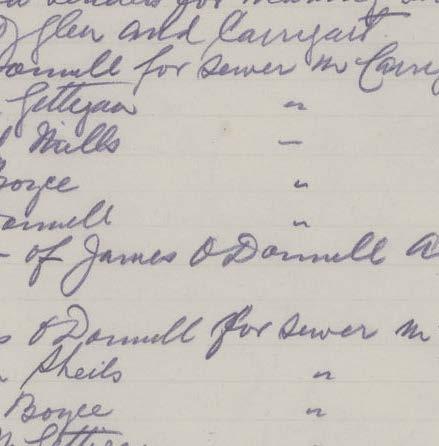 Tenders for
Glen and Carrigart
Donnell for sewer in Carrig
Gettigan "
Mills –
Boyce "
Donnell "
- of James O'Donnell A
O'Donnell for sewer in
Sheils "
Boyce "
Gettigan